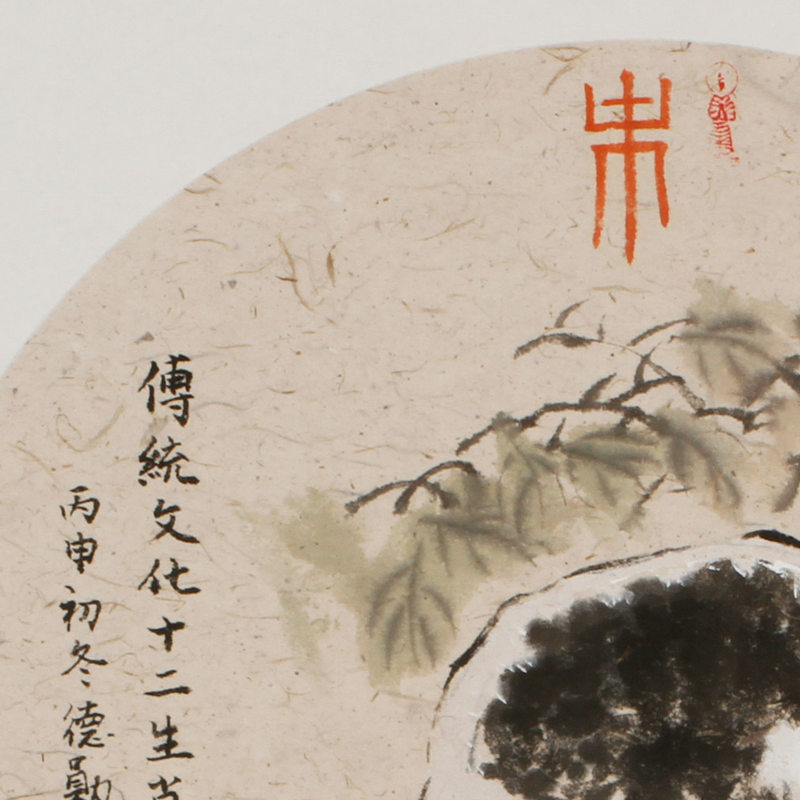 未
傳統文化十二生肖
丙申初冬德勛